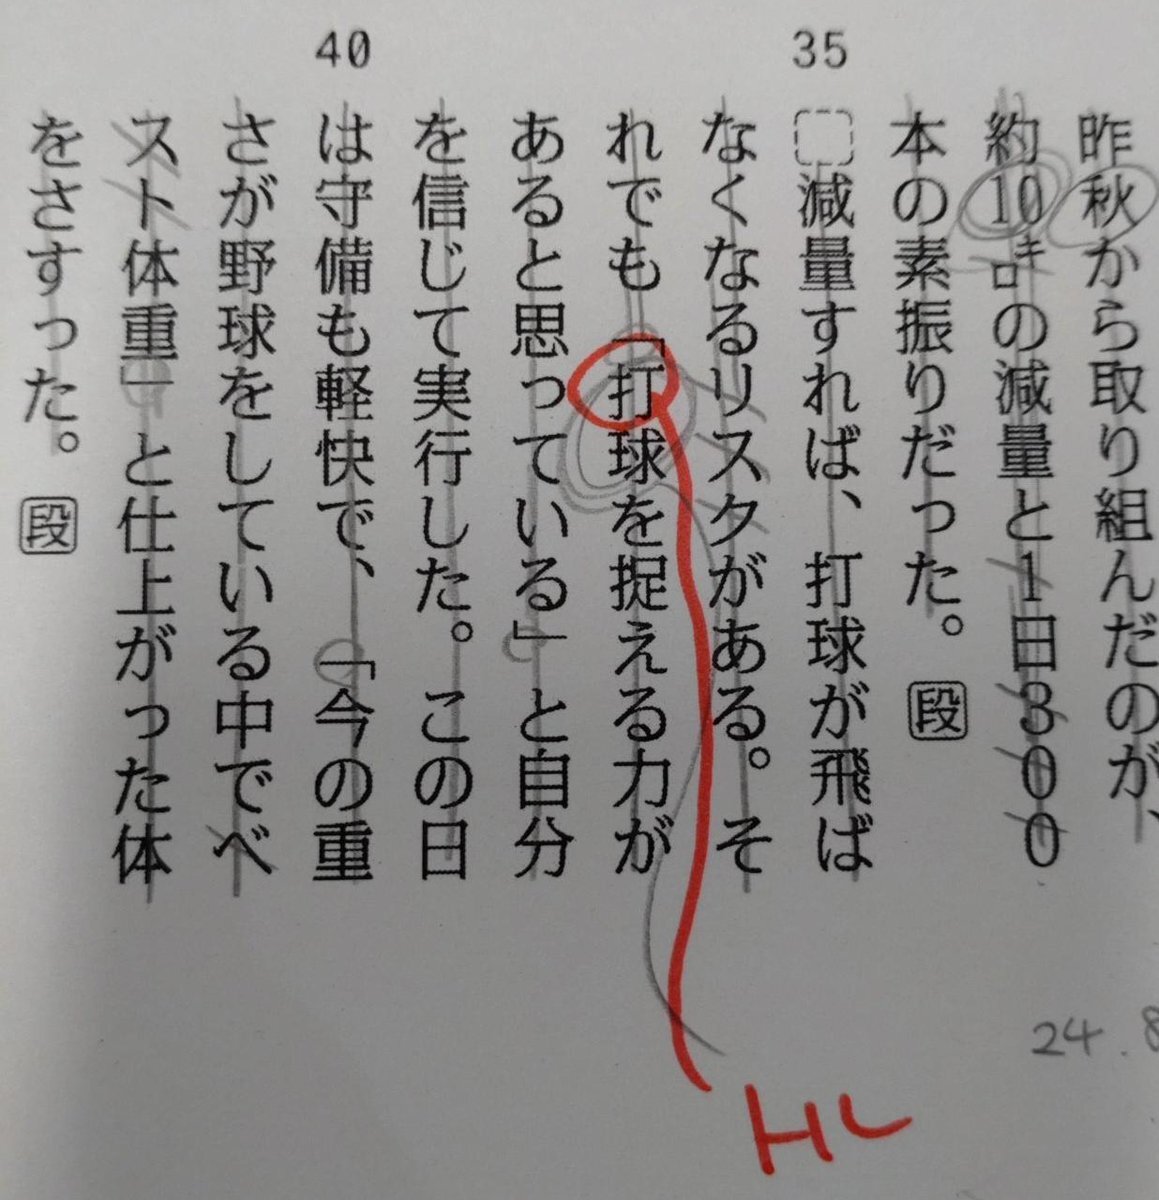 昨秋から取り組んだのが、
約10㌔の減量と1日300
本の素振りだった。段
35
減量すれば、打球が飛ば
なくなるリスクがある。そ
れでも「打球を捉える力が
あると思っている」と自分
を信じて実行した。この日
40
は守備も軽快で、「今の重
さが野球をしている中でベ
スト体重」と仕上がった体
をさすった。段
24.8
HL